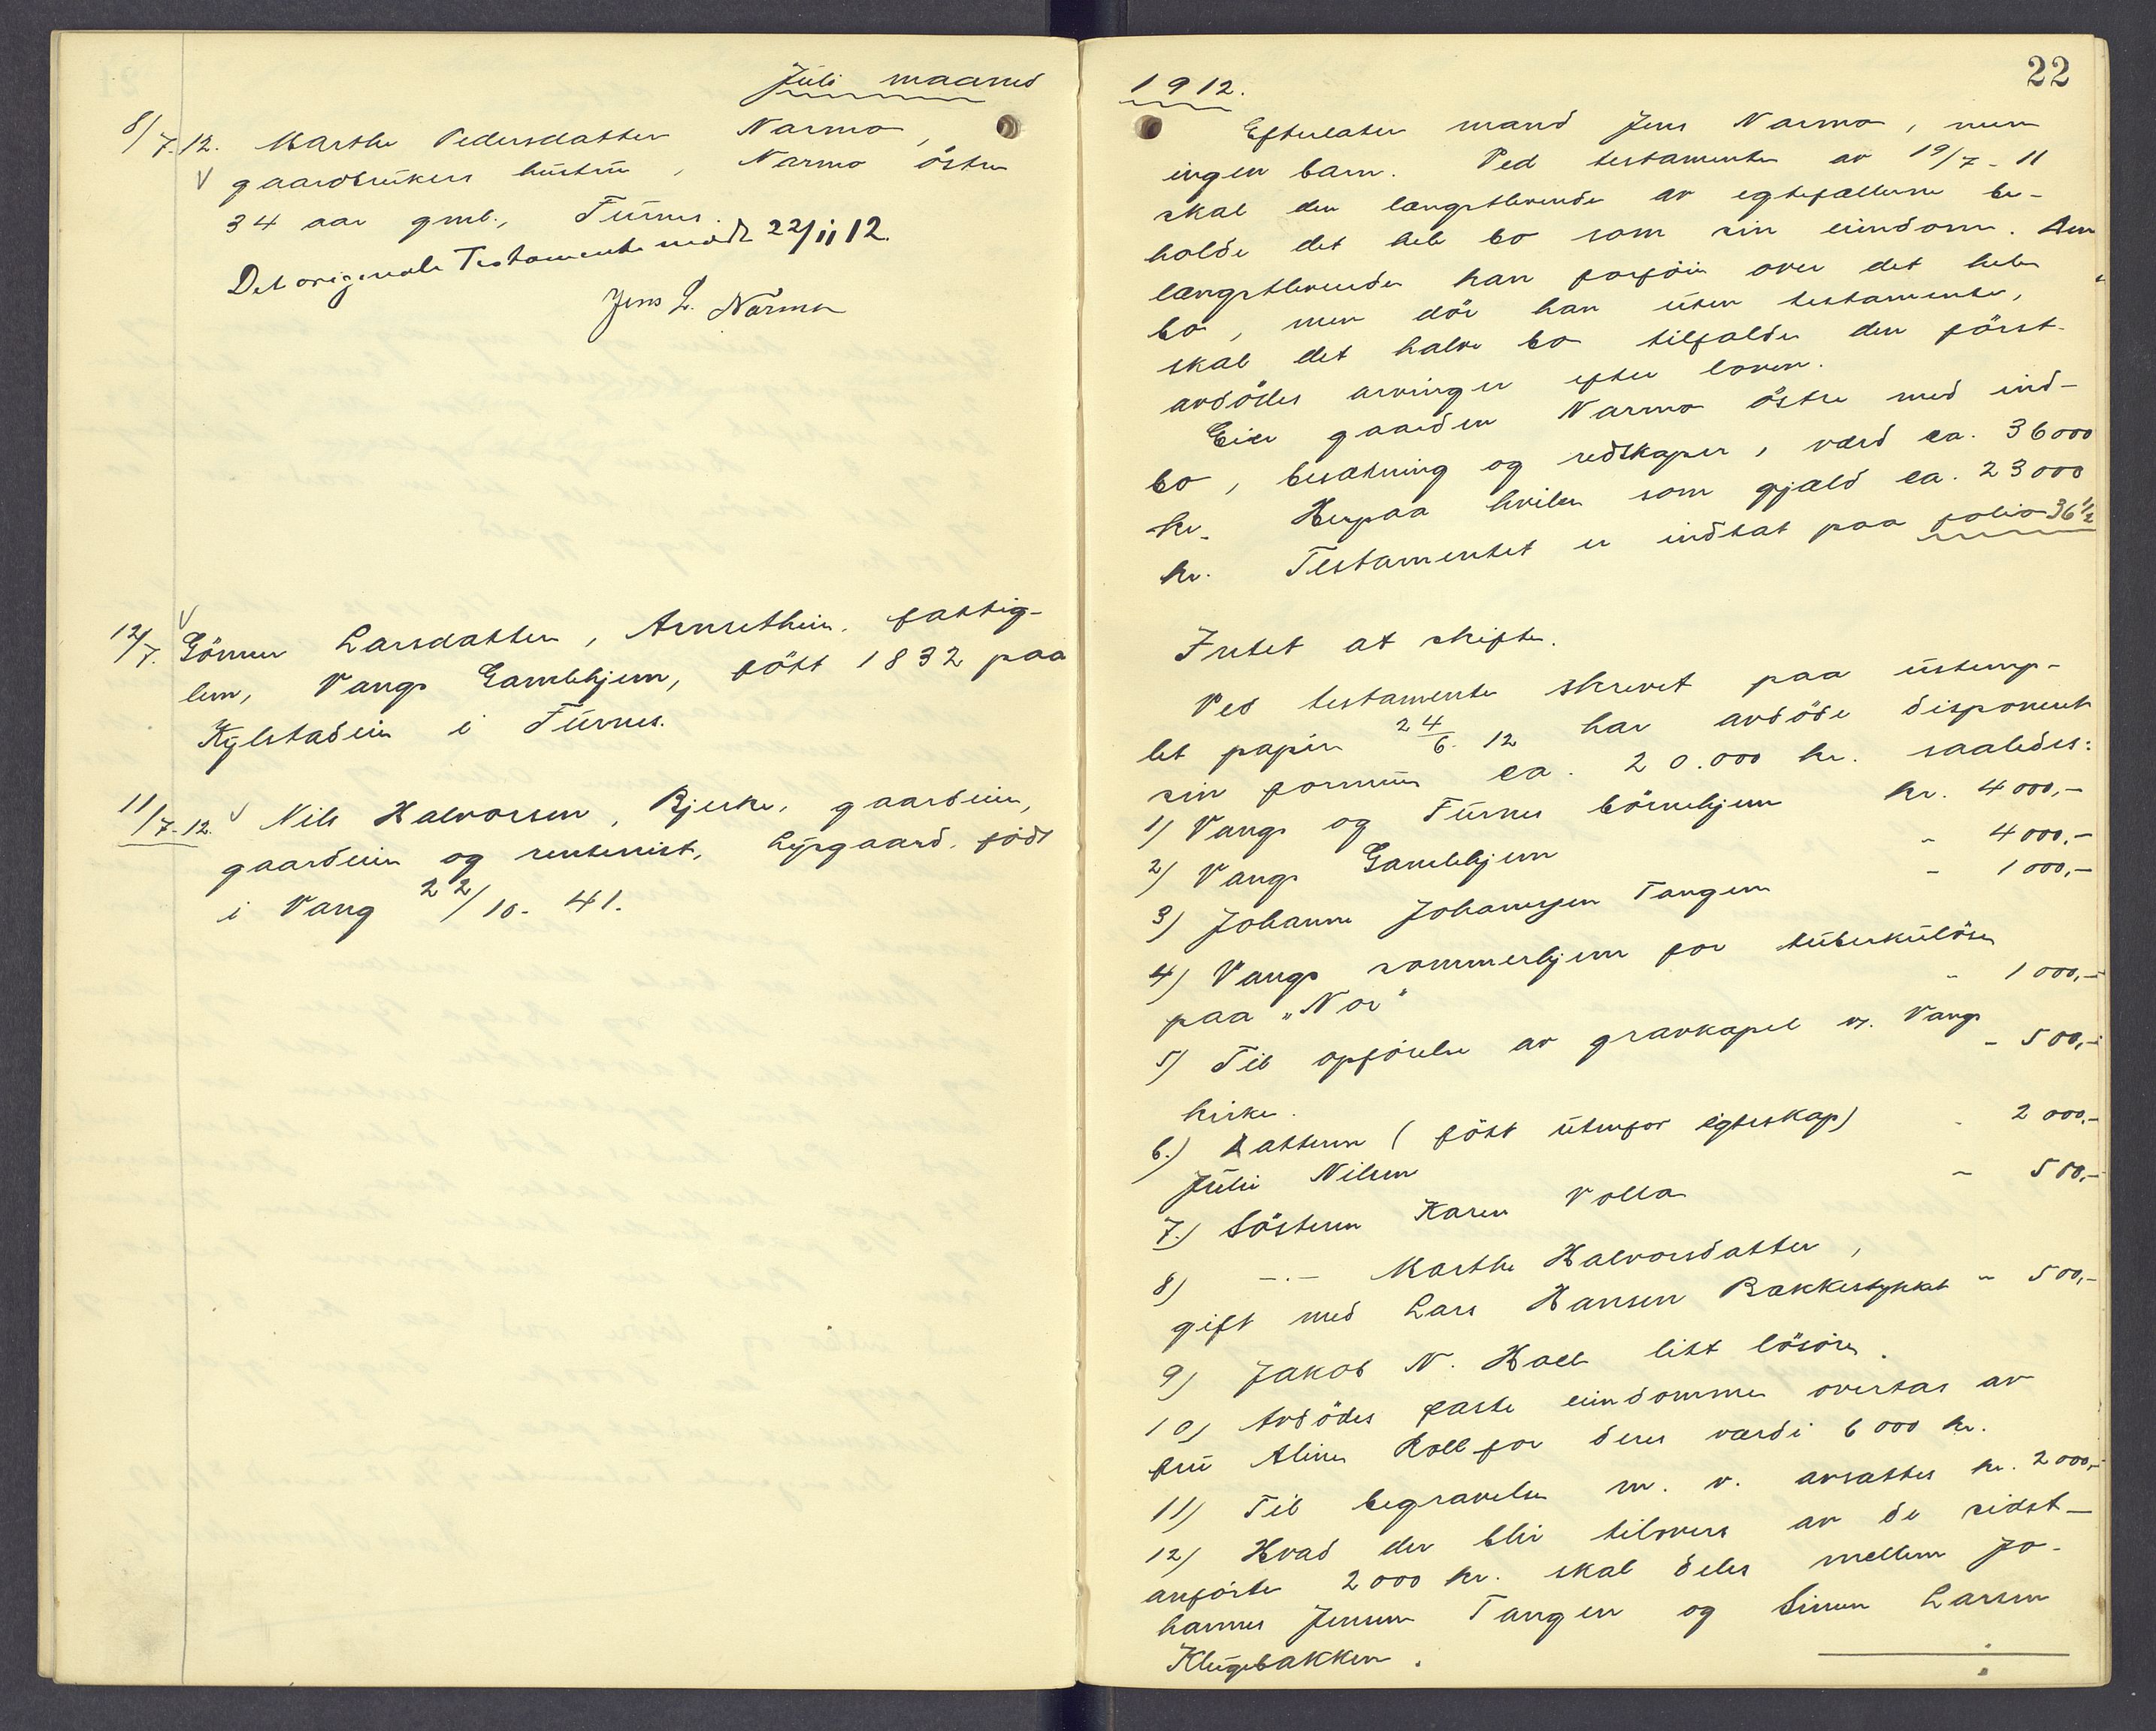 Juli maaned
8/7.12. Marthe Pedersdatter Narmo,
gaardbrukers hustru, Narmo östre
34 aar gml., Furnes.
Det originale Testamente modt 22/11 12.
Jens L. Narmo
12/7. Gönner Larsdatter, Arnsethein. fattig-
lem, Vangs Gamlehjem, född 1832 paa
Kylstadeie i Furnes.
11/7-12. Nils Halvorsen, Bjerke, gaardeier,
gaardeier og rentenist, Lysgaard. född
i Vang 22/10-41.
22
1912.
Efterlater mand Jens Narmo, men
ingen barn. Ved testamente av 19/7-11
skal den længstlevende av egtefællerne be-
holde det hele bo som sin eiendom. Den
længstlevende kan forföie over det hele
bo, men dör han uten testamente,
skal det halve bo tilfalde den först-
avdödes arvinger efter loven.
Eier gaarden Narmo östre med ind-
bo, besætning og redskaper, værd ca. 36000
kr. Herpaa hviler som gjæld ca. 23000
kr. Testamentet er indtat paa folio 36 1/2
Intet at skifte.
Ved testamente skrevet paa ustemp-
let papir 24/6.12 har avdöde disponert
sin formue ca. 20.000 kr. saaledes:
1) Vangs og Furnes börnehjem kr. 4000,-
2) Vangs Gamlehjem " 4000,-
3) Johanne Johannesen Tangen " 1000,-
4) Vangs sommerhjem for tuberkulöse
paa "Nor" " 1000,-
5) Til opförelse av gravkapel v. Vangs
kirke. " 500,-
6.) Datteren (född utenfor egteskap)
Julie Nilsen " 2000,-
7.) Sösteren Karen Volla " 500,-
8) -.- Marthe Halvorsdatter,
gift med Lars Hansen Bakkestykket " 500,-
9) Jakob N. Holl litt lösöre.
10) Avdödes faste eiendommer overtas av
fru Aline Holl for deres værdi 6000 kr.
11) Til begravelse m. v. avsættes kr. 2000,-
12) Hvad der blir tilovers av de sidst-
anförte 2000 kr. skal deles mellem Jo-
hannes Jensen Tangen og Simen Larsen
Klugebakken.